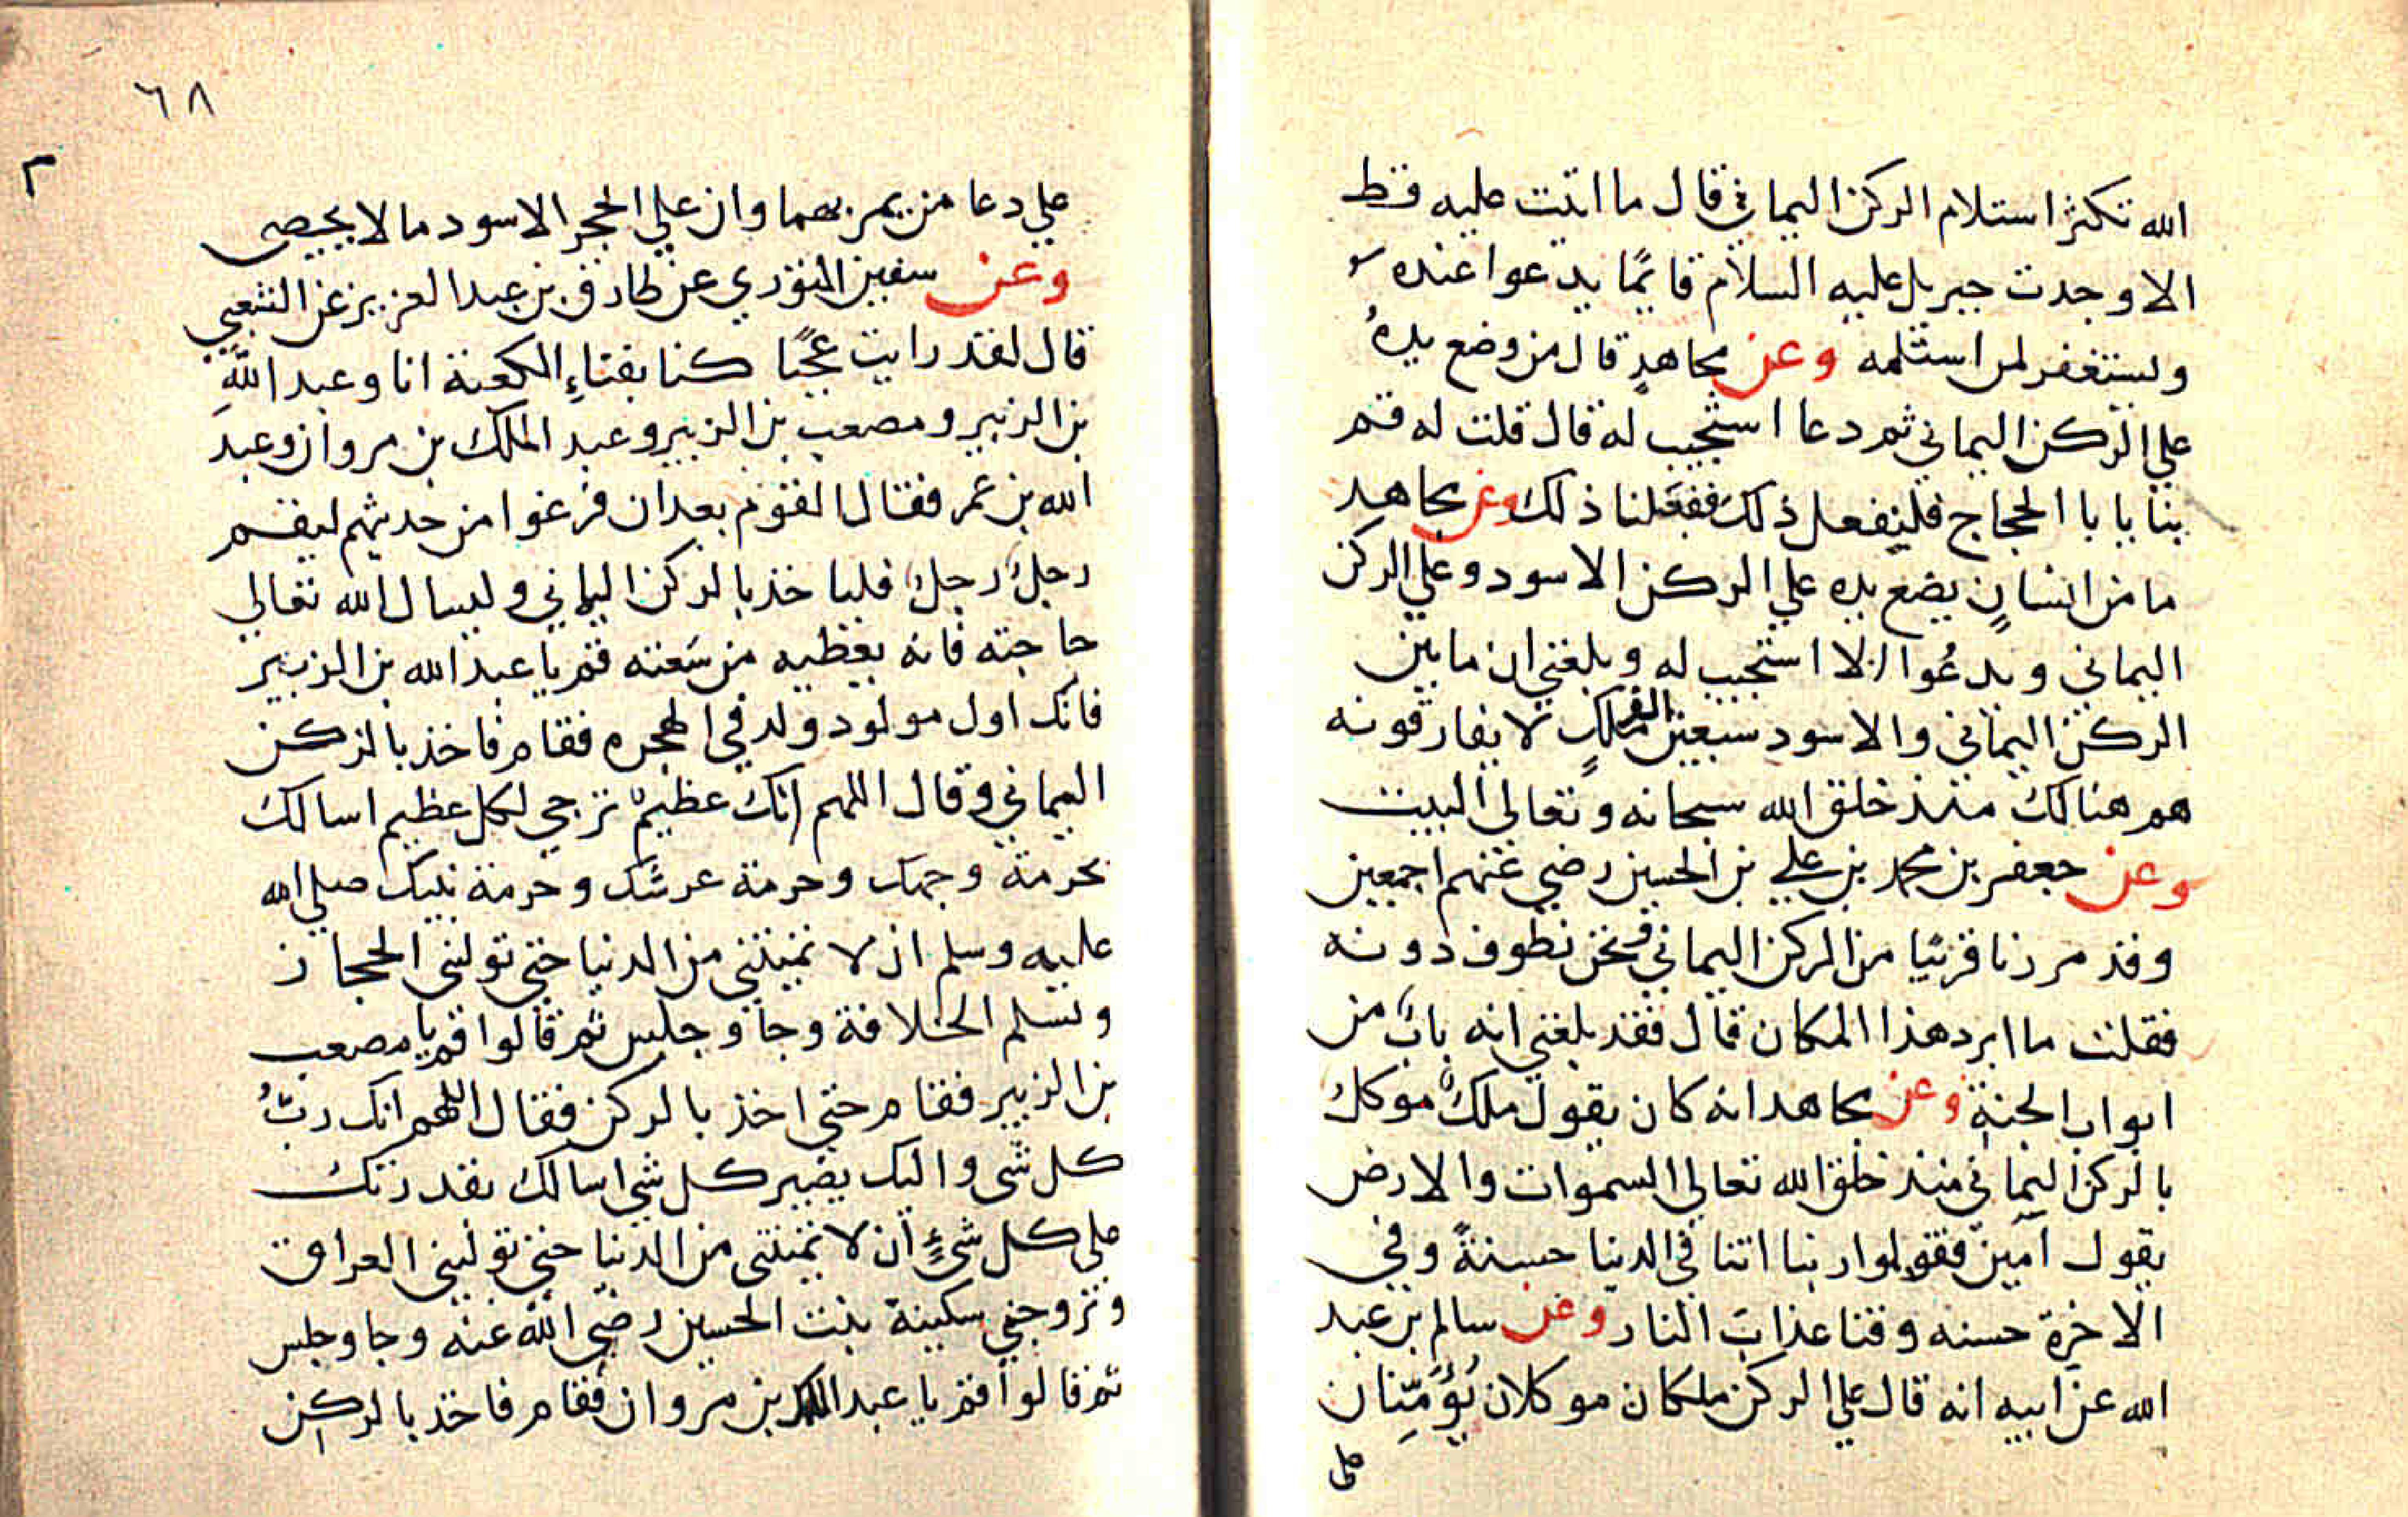 الله تكثر استلام الركن اليماني قال ما اتيت عليه قط
الا وجدت جبريل عليه السلام قايمًا يدعوا عنده
ويستغفر لمن استلمه وعن مجاهدٍ قال من وضع يدهُ
علي الركن اليماني ثم دعا استجيب له قال قلت له قم
بنا يا با الحجاج فلنفعل ذلك ففعلنا ذلك وعن مجاهد
ما من انسانٍ يضع يده علي الركن الاسود وعلي الركن
اليماني ويدعُوا الا استجيب له وبلغني ان ما بين
الركن اليماني والاسود سبعين الف ملكٍ لا يفارقونه
هم هنالك منذ خلق الله سبحانه وتعالي البيت
وعن جعفر بن محمد بن علي بن الحسين رضي عنهم اجمعين
وقد مررنا قريبًا من الركن اليماني ونحن نطوف دونه
فقلت ما ابرد هذا المكان قال فقد بلغني انه بابٌ من
ابواب الجنةِ وعن مجاهد انه كان يقول ملكٌ موكلٌ
بالركن اليماني منذ خلق الله تعالي السموات والارض
يقول آمين فقولوا ربنا اتنا في الدنيا حسنةً وفي
الاخرة حسنه وقنا عذابَ النار وعن سالم بن عبد
الله عن ابيه انه قال علي الركن ملكان موكلان يُؤَمِّنان
علي
٦٨
٢
علي دعا من يمر بهما وان علي الحجر الاسود ما لا يحصى
وعن سفين الثوري عن طارق بن عبد العزيز عن الشعبي
قال لقد رايت عجبًا كنا بفناءِ الكعبة انا وعبد اللهِ
بن الزبير ومصعب بن الزبير وعبد الملك بن مروان وعبد
الله بن عمر فقال القوم بعد ان فرغوا من حديثهم ليقم
رجلٌ رجلٌ فليا خذ بالركن اليماني وليسال الله تعالي
حاجته فانه يعطيه من سَعته قم يا عبد الله بن الزبير
فانك اول مولود ولد في الهجره فقام فاخذ بالركن
اليماني وقال اللهم انك عظيمٌ ترجي لكل عظيم اسالك
بحرمة وجهك وحرمة عرشك وحرمة نبيك صلي الله
عليه وسلم ان لا تميتني من الدنيا حتي توليني الحجاز
وتسلم الخلافة وجا وجلس ثم قالوا قم يا مصعب
بن الزبير فقام حتي اخذ بالركن فقال اللهم انك ربُّ
كل شي واليك يصير كل شي اسالك بقدرتك
علي كل شيءٍ ان لا تميتني من الدنيا حتي توليني العراق
وتزوجني سكينة بنت الحسين رضي الله عنه وجا وجلس
ثم قالوا قم يا عبد الملك بن مروان فقام فاخذ بالركن